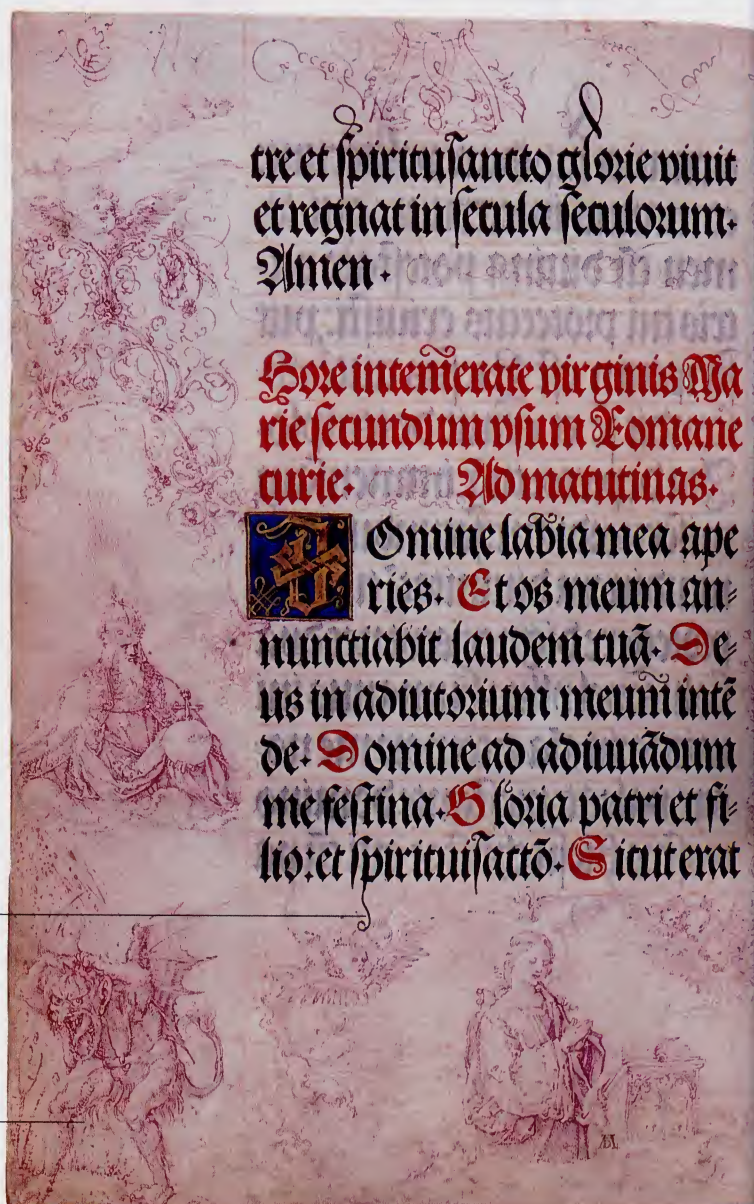 tre et spiritusancto glorie viuit
et regnat in secula seculorum.
Amen.
Hore intem̃erate virginis Ma
rie secundum vsum Romane
curie. Ad matutinas.
DOmine labia mea ape
ries. Et os meum an⸗
nunctiabit laudem tuã. De⸗
us in adiutorium meum̃ intẽ
de. Domine ad adiuuãdum
me festina. Gloria patri et fi⸗
lio: et spirituisactõ. Sicut erat